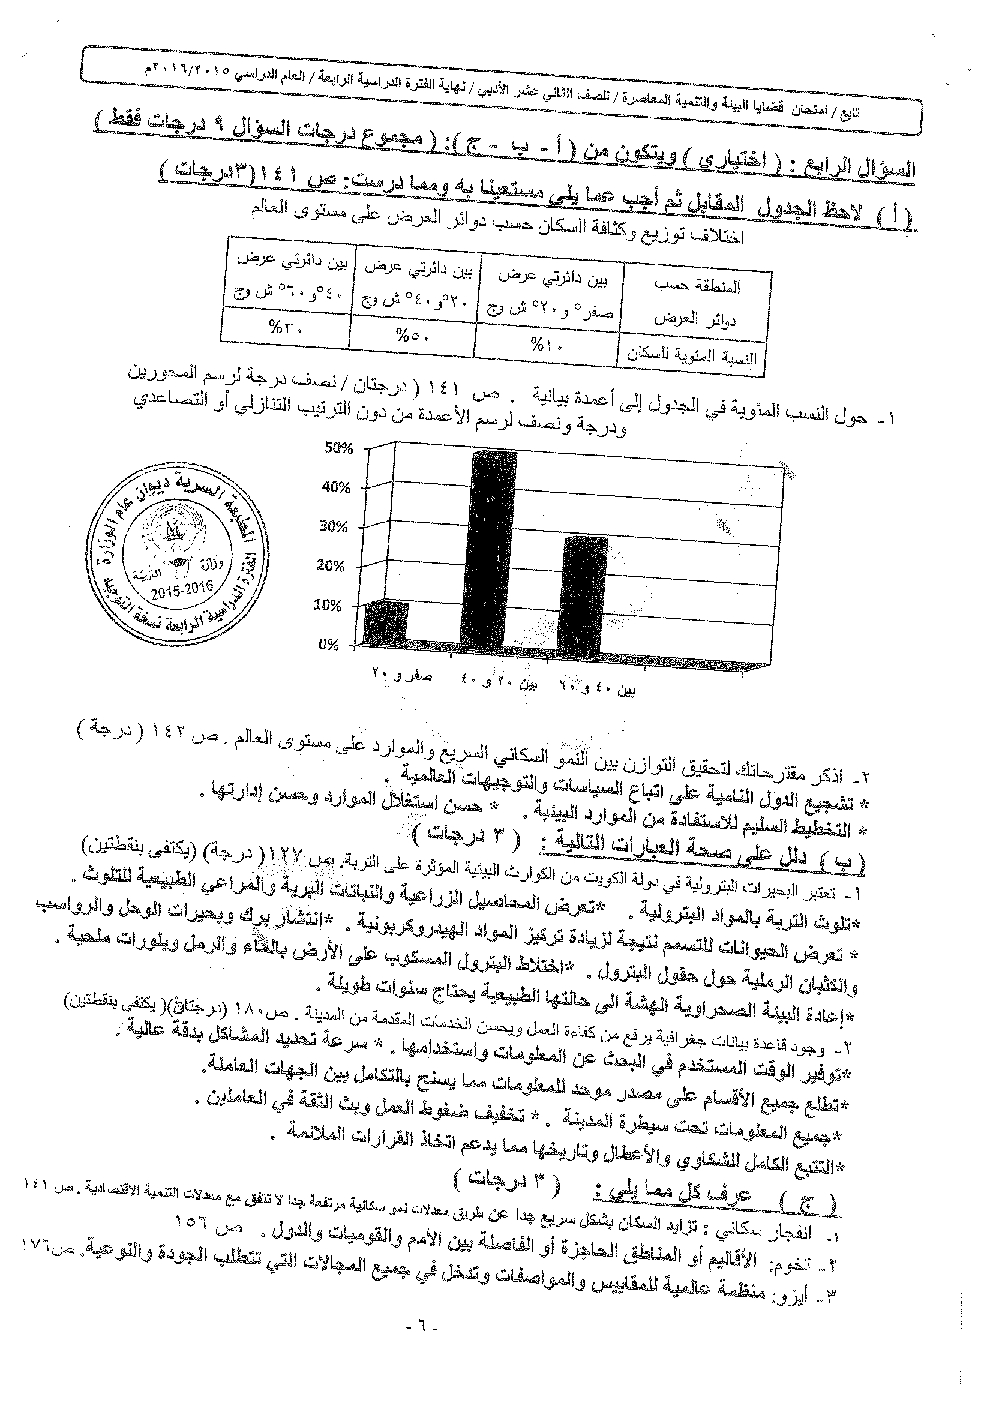 تابع / امتحان قضايا البيئة والتنمية المعاصرة / للصف الثاني عشر الأدبي / نهاية الفترة الدراسية الرابعة / العام الدراسي ٢٠١٦/٢٠١٥م
السؤال الرابع : ( اختياري ) ويتكون من ( أ - ب - ج ): ( مجموع درجات السؤال ٩ درجات فقط )
( أ ) لاحظ الجدول المقابل ثم أجب عما يلي مستعينا به ومما درست: ص ١٤١ (٣درجات )
اختلاف توزيع وكثافة السكان حسب دوائر العرض على مستوى العالم
المنطقة حسب دوائر العرض | بين دائرتي عرض صفر° و ٢٠° ش وج | بين دائرتي عرض ٢٠° و ٤٠° ش وج | بين دائرتي عرض ٤٠° و ٦٠° ش وج
النسبة المئوية للسكان | ١٠% | ٥٠% | ٣٠%
١- حول النسب المئوية في الجدول إلى أعمدة بيانية . ص ١٤١ ( درجتان / نصف درجة لرسم المحورين
ودرجة ونصف لرسم الأعمدة من دون الترتيب التنازلي أو التصاعدي
50%
40%
30%
20%
10%
0%
صفر و ٢٠
بين ٢٠ و ٤٠
بين ٤٠ و ٦٠
المطبعة السرية ديوان عام الوزارة
وزارة التربية
2015-2016
الفترة الدراسية الرابعة نسخة التوجيه
٢- اذكر مقترحاتك لتحقيق التوازن بين النمو السكاني السريع والموارد على مستوى العالم . ص ١٤٢ ( درجة )
* تشجيع الدول النامية على اتباع السياسات والتوجيهات العالمية .
* التخطيط السليم للاستفادة من الموارد البيئية . * حسن استغلال الموارد وحسن إدارتها .
( ب ) دلل على صحة العبارات التالية : ( ٣ درجات )
١- تعتبر البحيرات البترولية في دولة الكويت من الكوارث البيئية المؤثرة على التربة. ص ١٢٧ ( درجة) (يكتفى بنقطتين)
*تلوث التربة بالمواد البترولية . *تعرض المحاصيل الزراعية والنباتات البرية والمراعي الطبيعية للتلوث .
* تعرض الحيوانات للتسمم نتيجة لزيادة تركيز المواد الهيدروكربونية . *انتشار برك وبحيرات الوحل والرواسب
والكثبان الرملية حول حقول البترول . *اختلاط البترول المسكوب على الأرض بالماء والرمل وبلورات ملحية .
*إعادة البيئة الصحراوية الهشة الى حالتها الطبيعية يحتاج سنوات طويلة .
٢- وجود قاعدة بيانات جغرافية يرفع من كفاءة العمل ويحسن الخدمات المقدمة من المدينة . ص١٨٠ (درجتان)( يكتفى بنقطتين)
*توفير الوقت المستخدم في البحث عن المعلومات واستخدامها . * سرعة تحديد المشاكل بدقة عالية .
*تطلع جميع الأقسام على مصدر موحد للمعلومات مما يسنح بالتكامل بين الجهات العاملة.
*جميع المعلومات تحت سيطرة المدينة . * تخفيف ضغوط العمل وبث الثقة في العاملين .
*التتبع الكامل للشكاوي والأعطال وتاريخها مما يدعم اتخاذ القرارات الملائمة .
( ج ) عرف كل مما يلي : ( ٣ درجات )
١- انفجار سكاني : تزايد السكان بشكل سريع جدا عن طريق معدلات نمو سكانية مرتفعة جدا لا تتفق مع معدلات التنمية الاقتصادية . ص ١٤١
٢- تخوم: الأقاليم أو المناطق الحاجزة أو الفاصلة بين الأمم والقوميات والدول . ص ١٥٦
٣- أيزو: منظمة عالمية للمقاييس والمواصفات وتدخل في جميع المجالات التي تتطلب الجودة والنوعية. ص١٧٦
- ٦ -